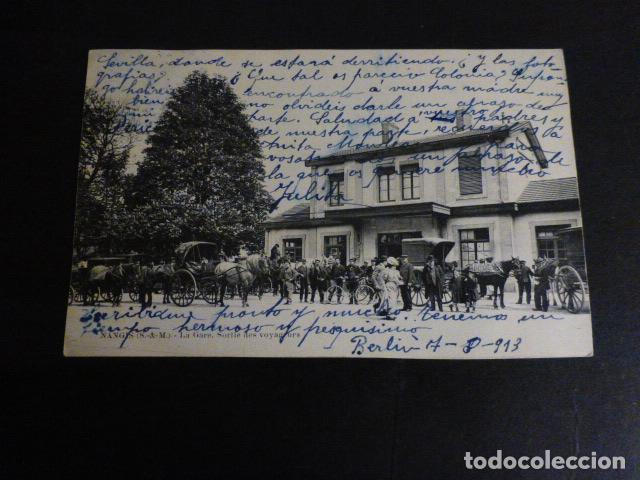 Sevilla, donde se estará derritiendo. ¿Y las foto
grafías? ¿Que tal os parecio Colonia? Supon
go habreis encontrado á vuestra madre muy
bien no olvideis darle un abrazo de
parte. Saludad á vuestros padres y
de nuestra parte, recuerdos á
y un abrazo de
la que os quiere mucho
Julita
Escribidme pronto y mucho, tenemos un
tiempo hermoso y fresquisimo
NANGIS (S.-&-M.) - La Gare. Sortie des voyageurs
Berlin 17-8-913
todocoleccion.net